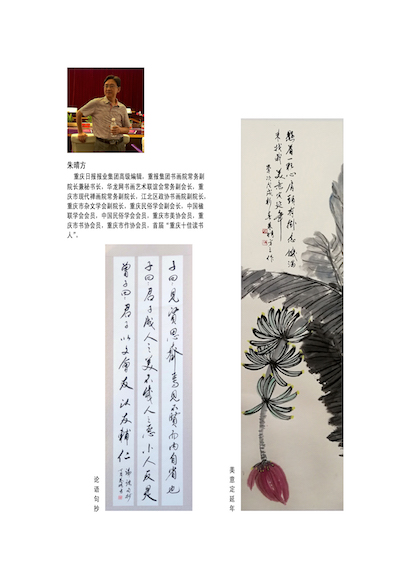 朱晴方
重庆日报报业集团高级编辑,重报集团书画院常务副
院长兼秘书长,华龙网书画艺术联谊会常务副会长,重
庆市现代禅画院常务副院长,江北区政协书画院副院长,
重庆市杂文学会副会长,重庆民俗学会副会长,中国楹
联学会会员,中国民俗学会会员,重庆市美协会员,重
庆市书协会员,重庆市作协会员,首届“重庆十佳读书
人”。
子曰見賢思齊焉見不賢而内自省也
子曰君子成人之美不成人之惡小人反是
曾子曰君子以文會友以友輔仁
论语句抄
美意定延年